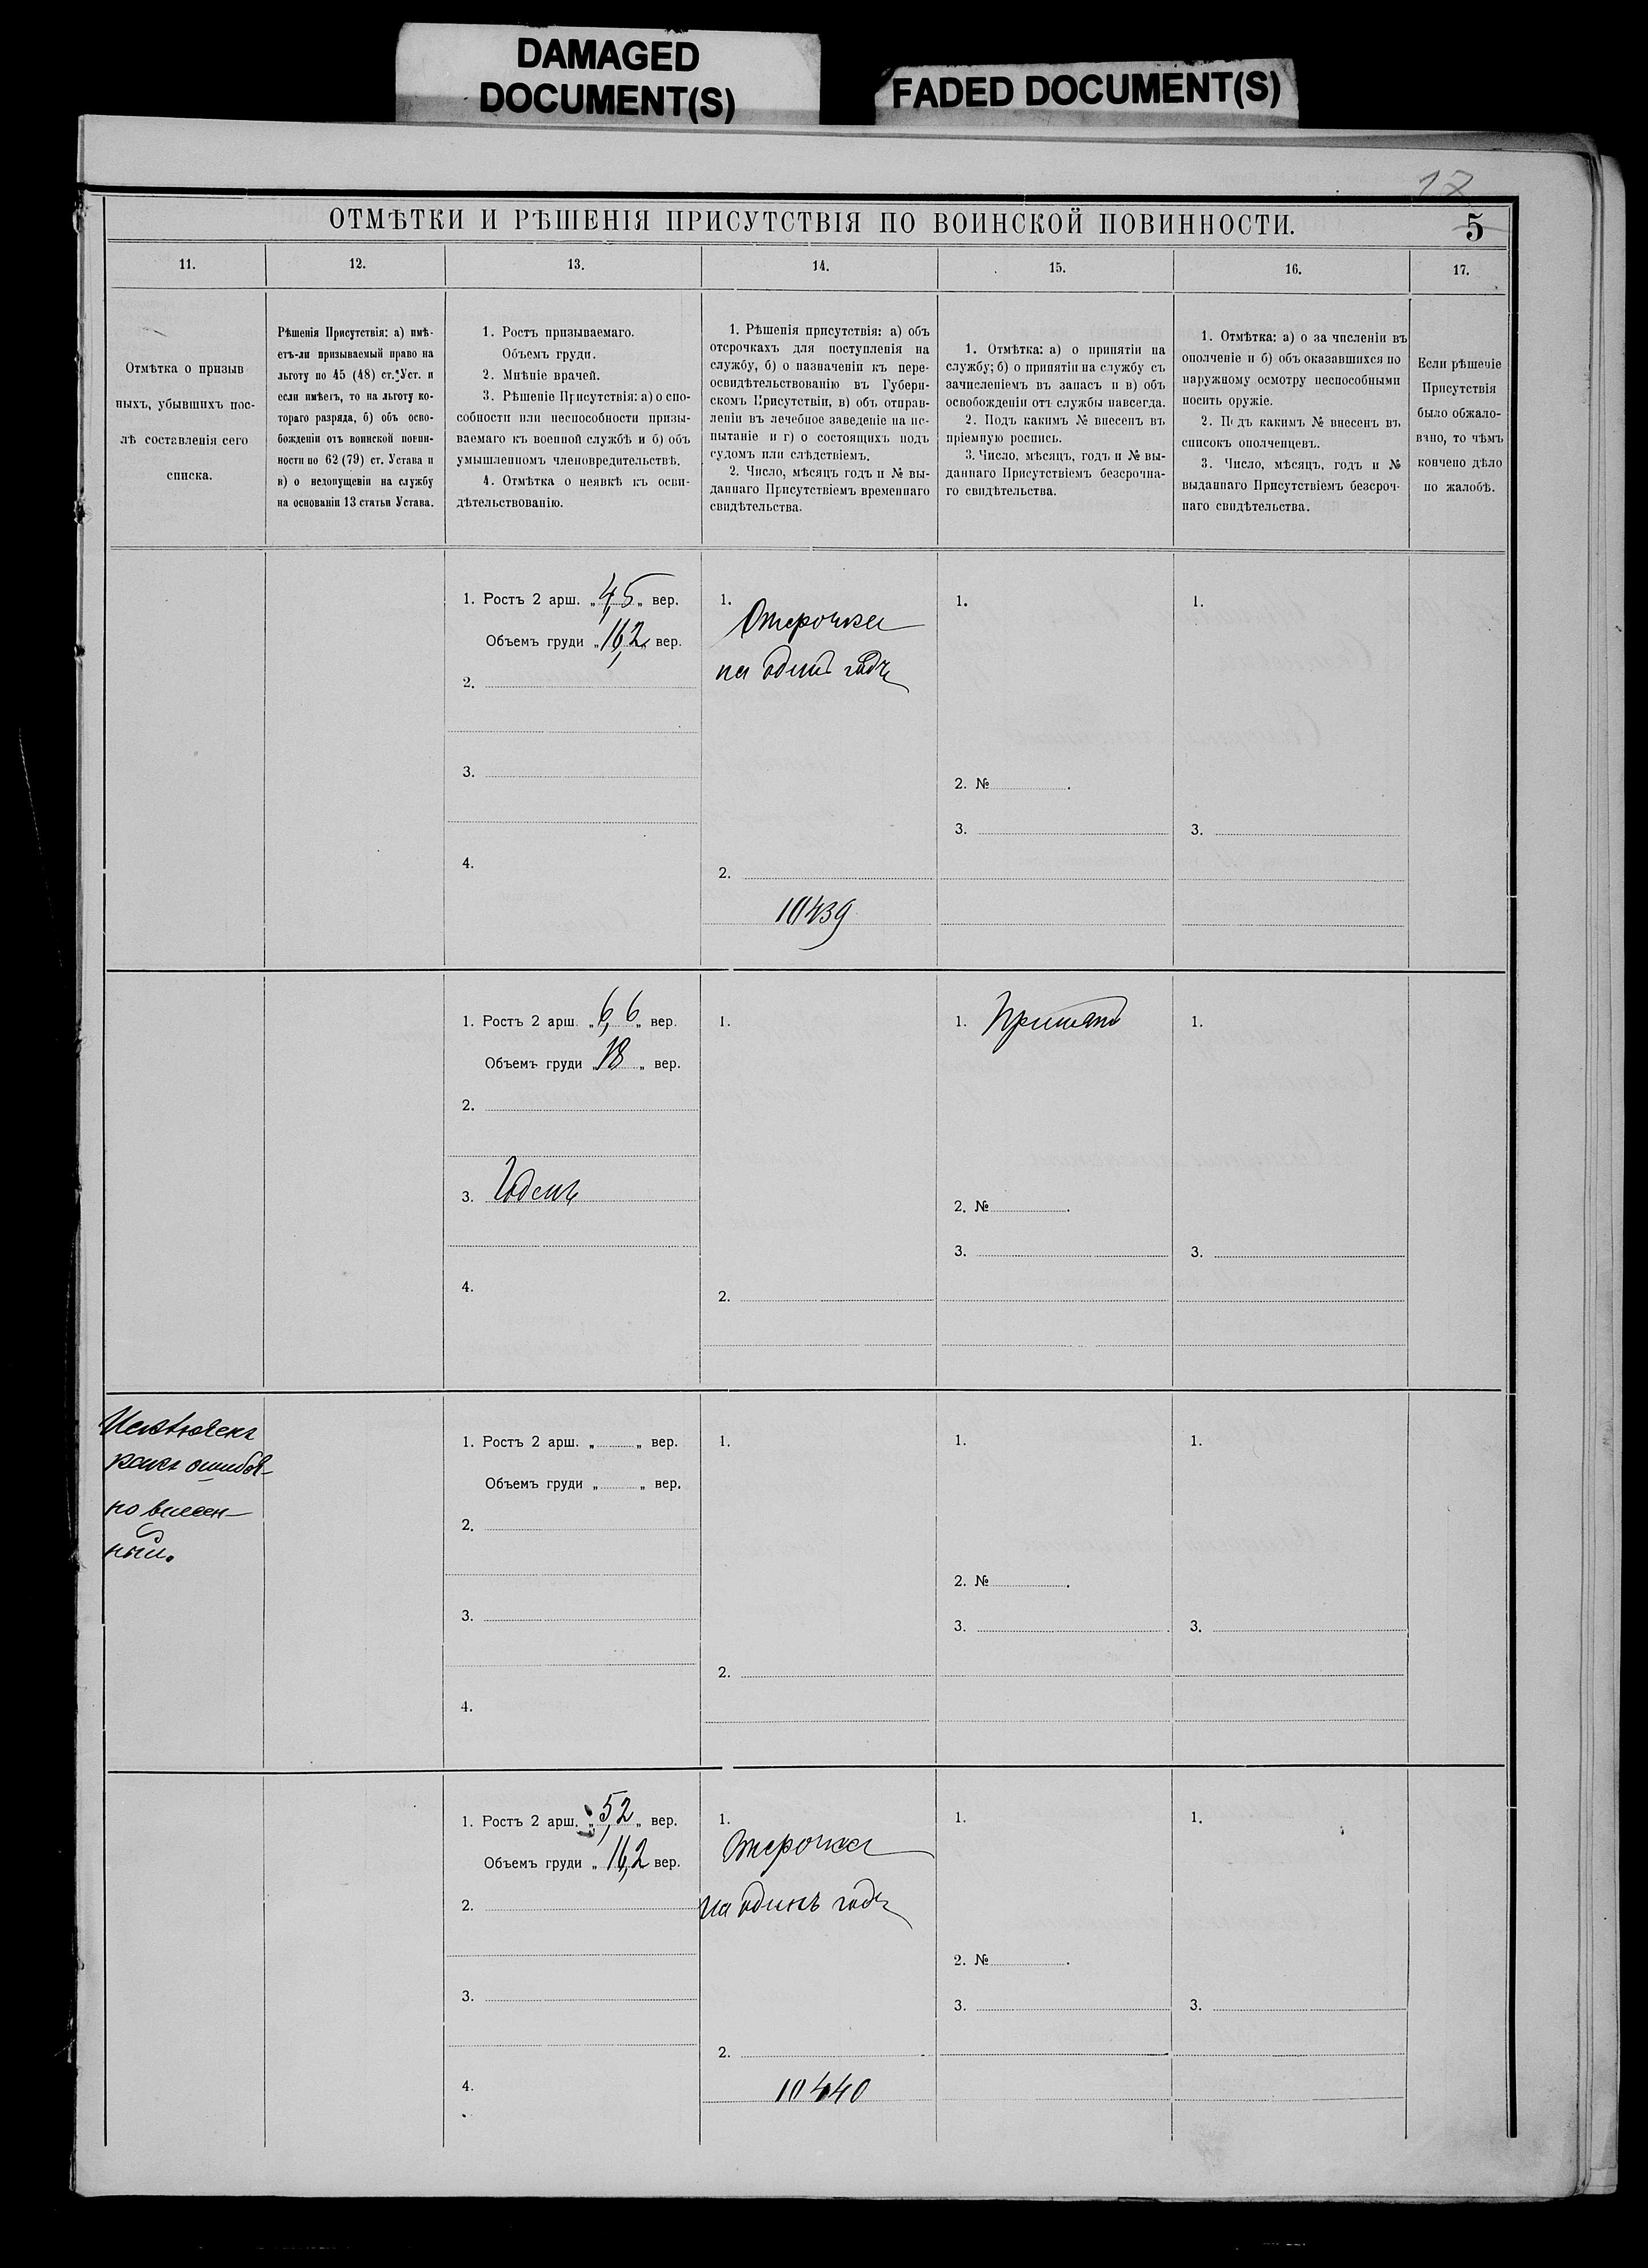 DAMAGED
DOCUMENT(S)
FADED DOCUMENT(S)
17
ОТМѢТКИ И РѢШЕНІЯ ПРИСУТСТВІЯ ПО ВОИНСКОЙ ПОВИННОСТИ.
5
11.
12.
13.
14.
15.
16.
17.
Отмѣтка о призыв
ныхъ, убывшихъ пос-
лѣ составленія сего
списка.
Рѣшенія Присутствія: а) имѣ-
етъ-ли призываемый право на
льготу по 45 (48) ст. Уст. и
если имѣетъ, то на льготу ко-
тораго разряда, б) объ осво-
божденіи отъ воинской повин-
ности по 62 (79) ст. Устава и
в) о недопущеніи на службу
на основаніи 13 статьи Устава.
1. Ростъ призываемаго.
Объемъ груди.
2. Мнѣніе врачей.
3. Рѣшеніе Присутствія: а) о спо-
собности или неспособности призы-
ваемаго къ военной службѣ и б) объ
умышленномъ членовредительствѣ.
4. Отмѣтка о неявкѣ къ осви-
дѣтельствованію.
1. Рѣшенія присутствія: а) объ
отсрочкахъ для поступленія на
службу, б) о назначеніи къ пере-
освидѣтельствованію въ Губерн-
скомъ Присутствіи, в) объ отправ-
леніи въ лечебное заведеніе на ис-
пытаніе и г) о состоящихъ подъ
судомъ или слѣдствіемъ.
2. Число, мѣсяцъ годъ и № вы-
даннаго Присутствіемъ временнаго
свидѣтельства.
1. Отмѣтка: а) о принятіи на
службу; б) о принятіи на службу съ
зачисленіемъ въ запасъ и в) объ
освобожденіи отъ службы навсегда.
2. Подъ какимъ № внесенъ въ
пріемную роспись.
3. Число, мѣсяцъ, годъ и № вы-
даннаго Присутствіемъ безсрочна-
го свидѣтельства.
1. Отмѣтка: а) о за численіи въ
ополченіе и б) объ оказавшихся по
наружному осмотру неспособными
носить оружіе.
2. Подъ какимъ № внесенъ въ
списокъ ополченцевъ.
3. Число, мѣсяцъ, годъ и №
выданнаго Присутствіемъ безсроч-
наго свидѣтельства.
Если рѣшеніе
Присутствія
было обжало-
вано, то чѣмъ
кончено дѣло
по жалобѣ.
1. Ростъ 2 арш. „4,5„ вер.
Объемъ груди „16,2„ вер.
2.
3.
4.
1. Отсрочка
на одинъ годъ
2.
10439
1.
2. №
3.
1.
3.
1. Ростъ 2 арш. „6,6„ вер.
Объемъ груди „18„ вер.
2.
3. Годенъ
4.
1.
2.
1. Принятъ
2. №
3.
1.
3.
Исключенъ
какъ ошибоч-
но внесен-
ный.
1. Ростъ 2 арш. „ „ вер.
Объемъ груди „ „ вер.
2.
3.
4.
1.
2.
1.
2. №
3.
1.
3.
1. Ростъ 2 арш. „5,2„ вер.
Объемъ груди „16,2 вер.
2.
3.
4.
1.
Отсрочка
на одинъ годъ
2.
10440
1.
2. №
3.
1.
3.